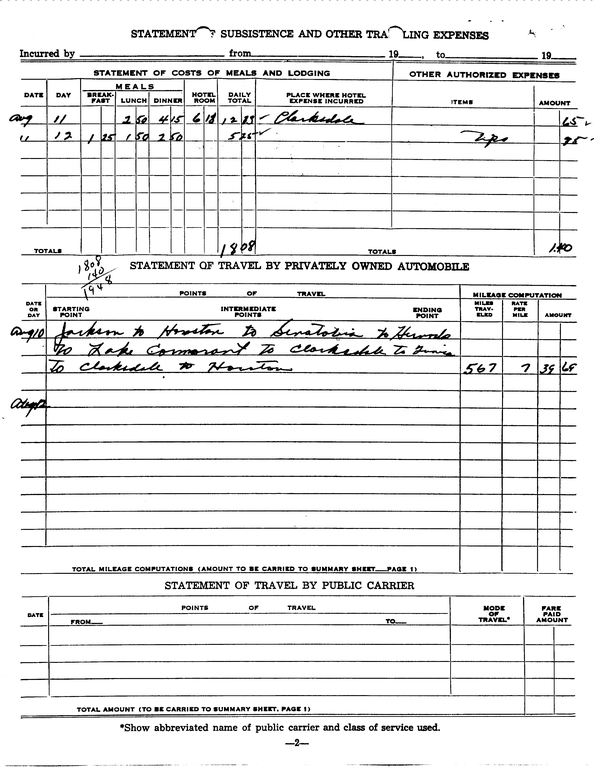 STATEMENT OF SUBSISTENCE AND OTHER TRAVELING EXPENSES
Incurred by from 19 , to 19
STATEMENT OF COSTS OF MEALS AND LODGING OTHER AUTHORIZED EXPENSES
DATE DAY MEALS BREAK-FAST LUNCH DINNER HOTEL ROOM DAILY TOTAL PLACE WHERE HOTEL EXPENSE INCURRED ITEMS AMOUNT
Aug 11 2 50 4 15 6 18 12 83 Clarksdale 65
" 12 1 25 1 50 2 50 5 25 Tips
TOTALS 18 08 TOTALS 1.40
1808
140
1948
STATEMENT OF TRAVEL BY PRIVATELY OWNED AUTOMOBILE
DATE OR DAY POINTS OF TRAVEL MILEAGE COMPUTATION
STARTING POINT INTERMEDIATE POINTS ENDING POINT MILES TRAV-ELED RATE PER MILE AMOUNT
Aug 10 Jackson to Houston to Senatobia to
to Lake Cormorant to Clarksdale to
to Clarksdale to Houston 567 7 39 69
Aug 12
TOTAL MILEAGE COMPUTATIONS (AMOUNT TO BE CARRIED TO SUMMARY SHEET PAGE 1)
STATEMENT OF TRAVEL BY PUBLIC CARRIER
DATE POINTS OF TRAVEL MODE OF TRAVEL* FARE PAID AMOUNT
FROM TO
TOTAL AMOUNT (TO BE CARRIED TO SUMMARY SHEET, PAGE 1)
*Show abbreviated name of public carrier and class of service used.
—2—